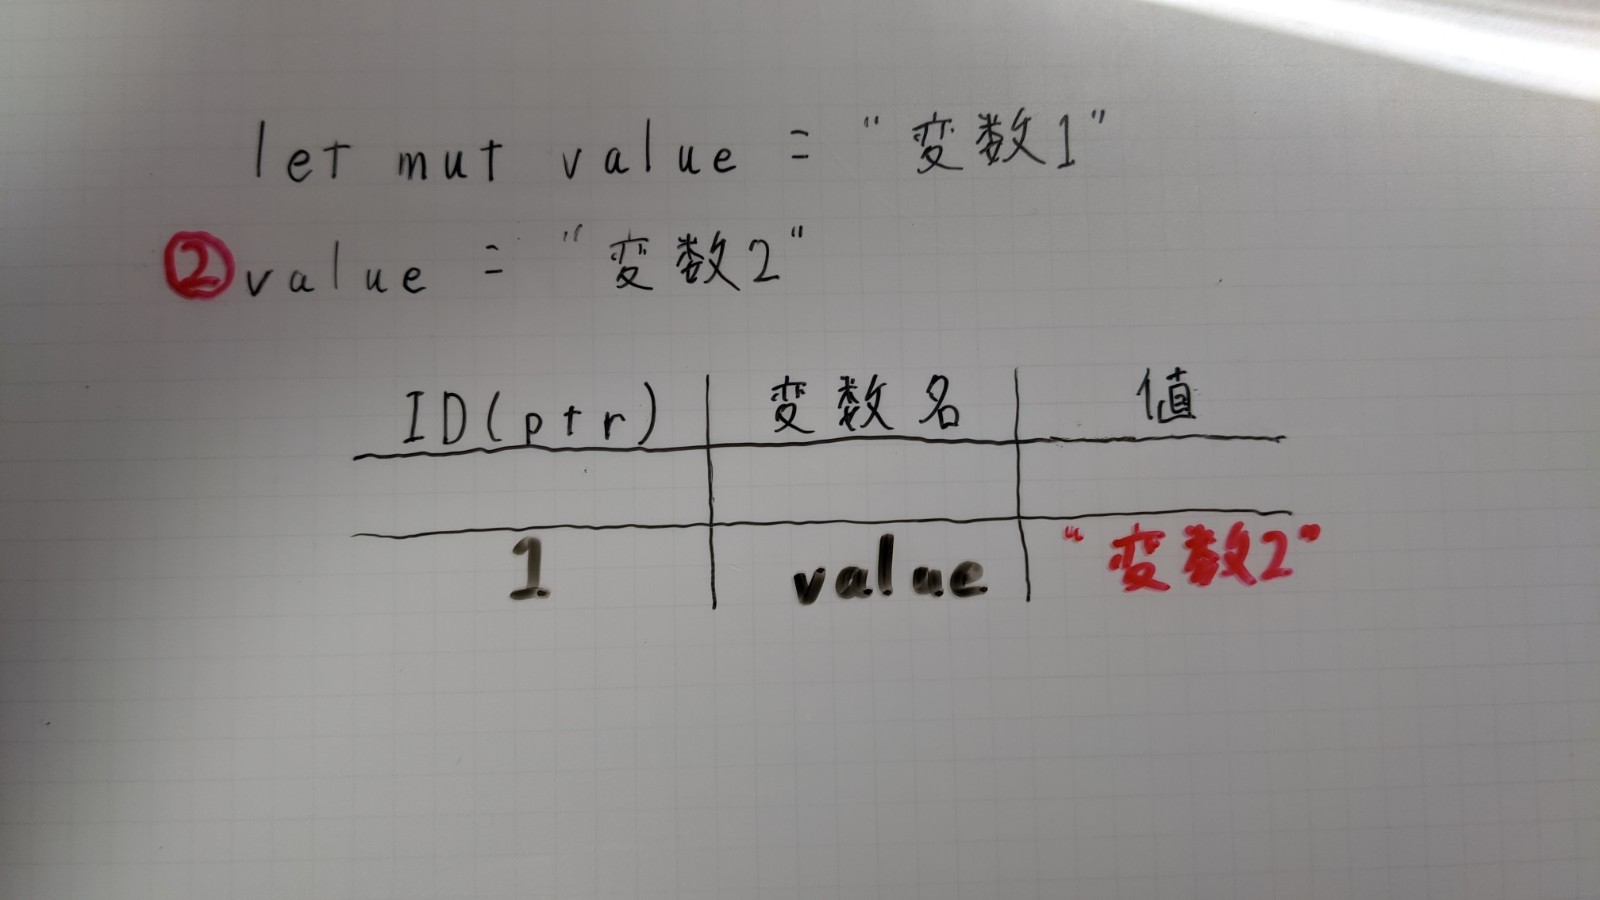 let mut value = "変数1"
②value = "変数2"
ID(ptr) 変数名 値
1 value "変数2"